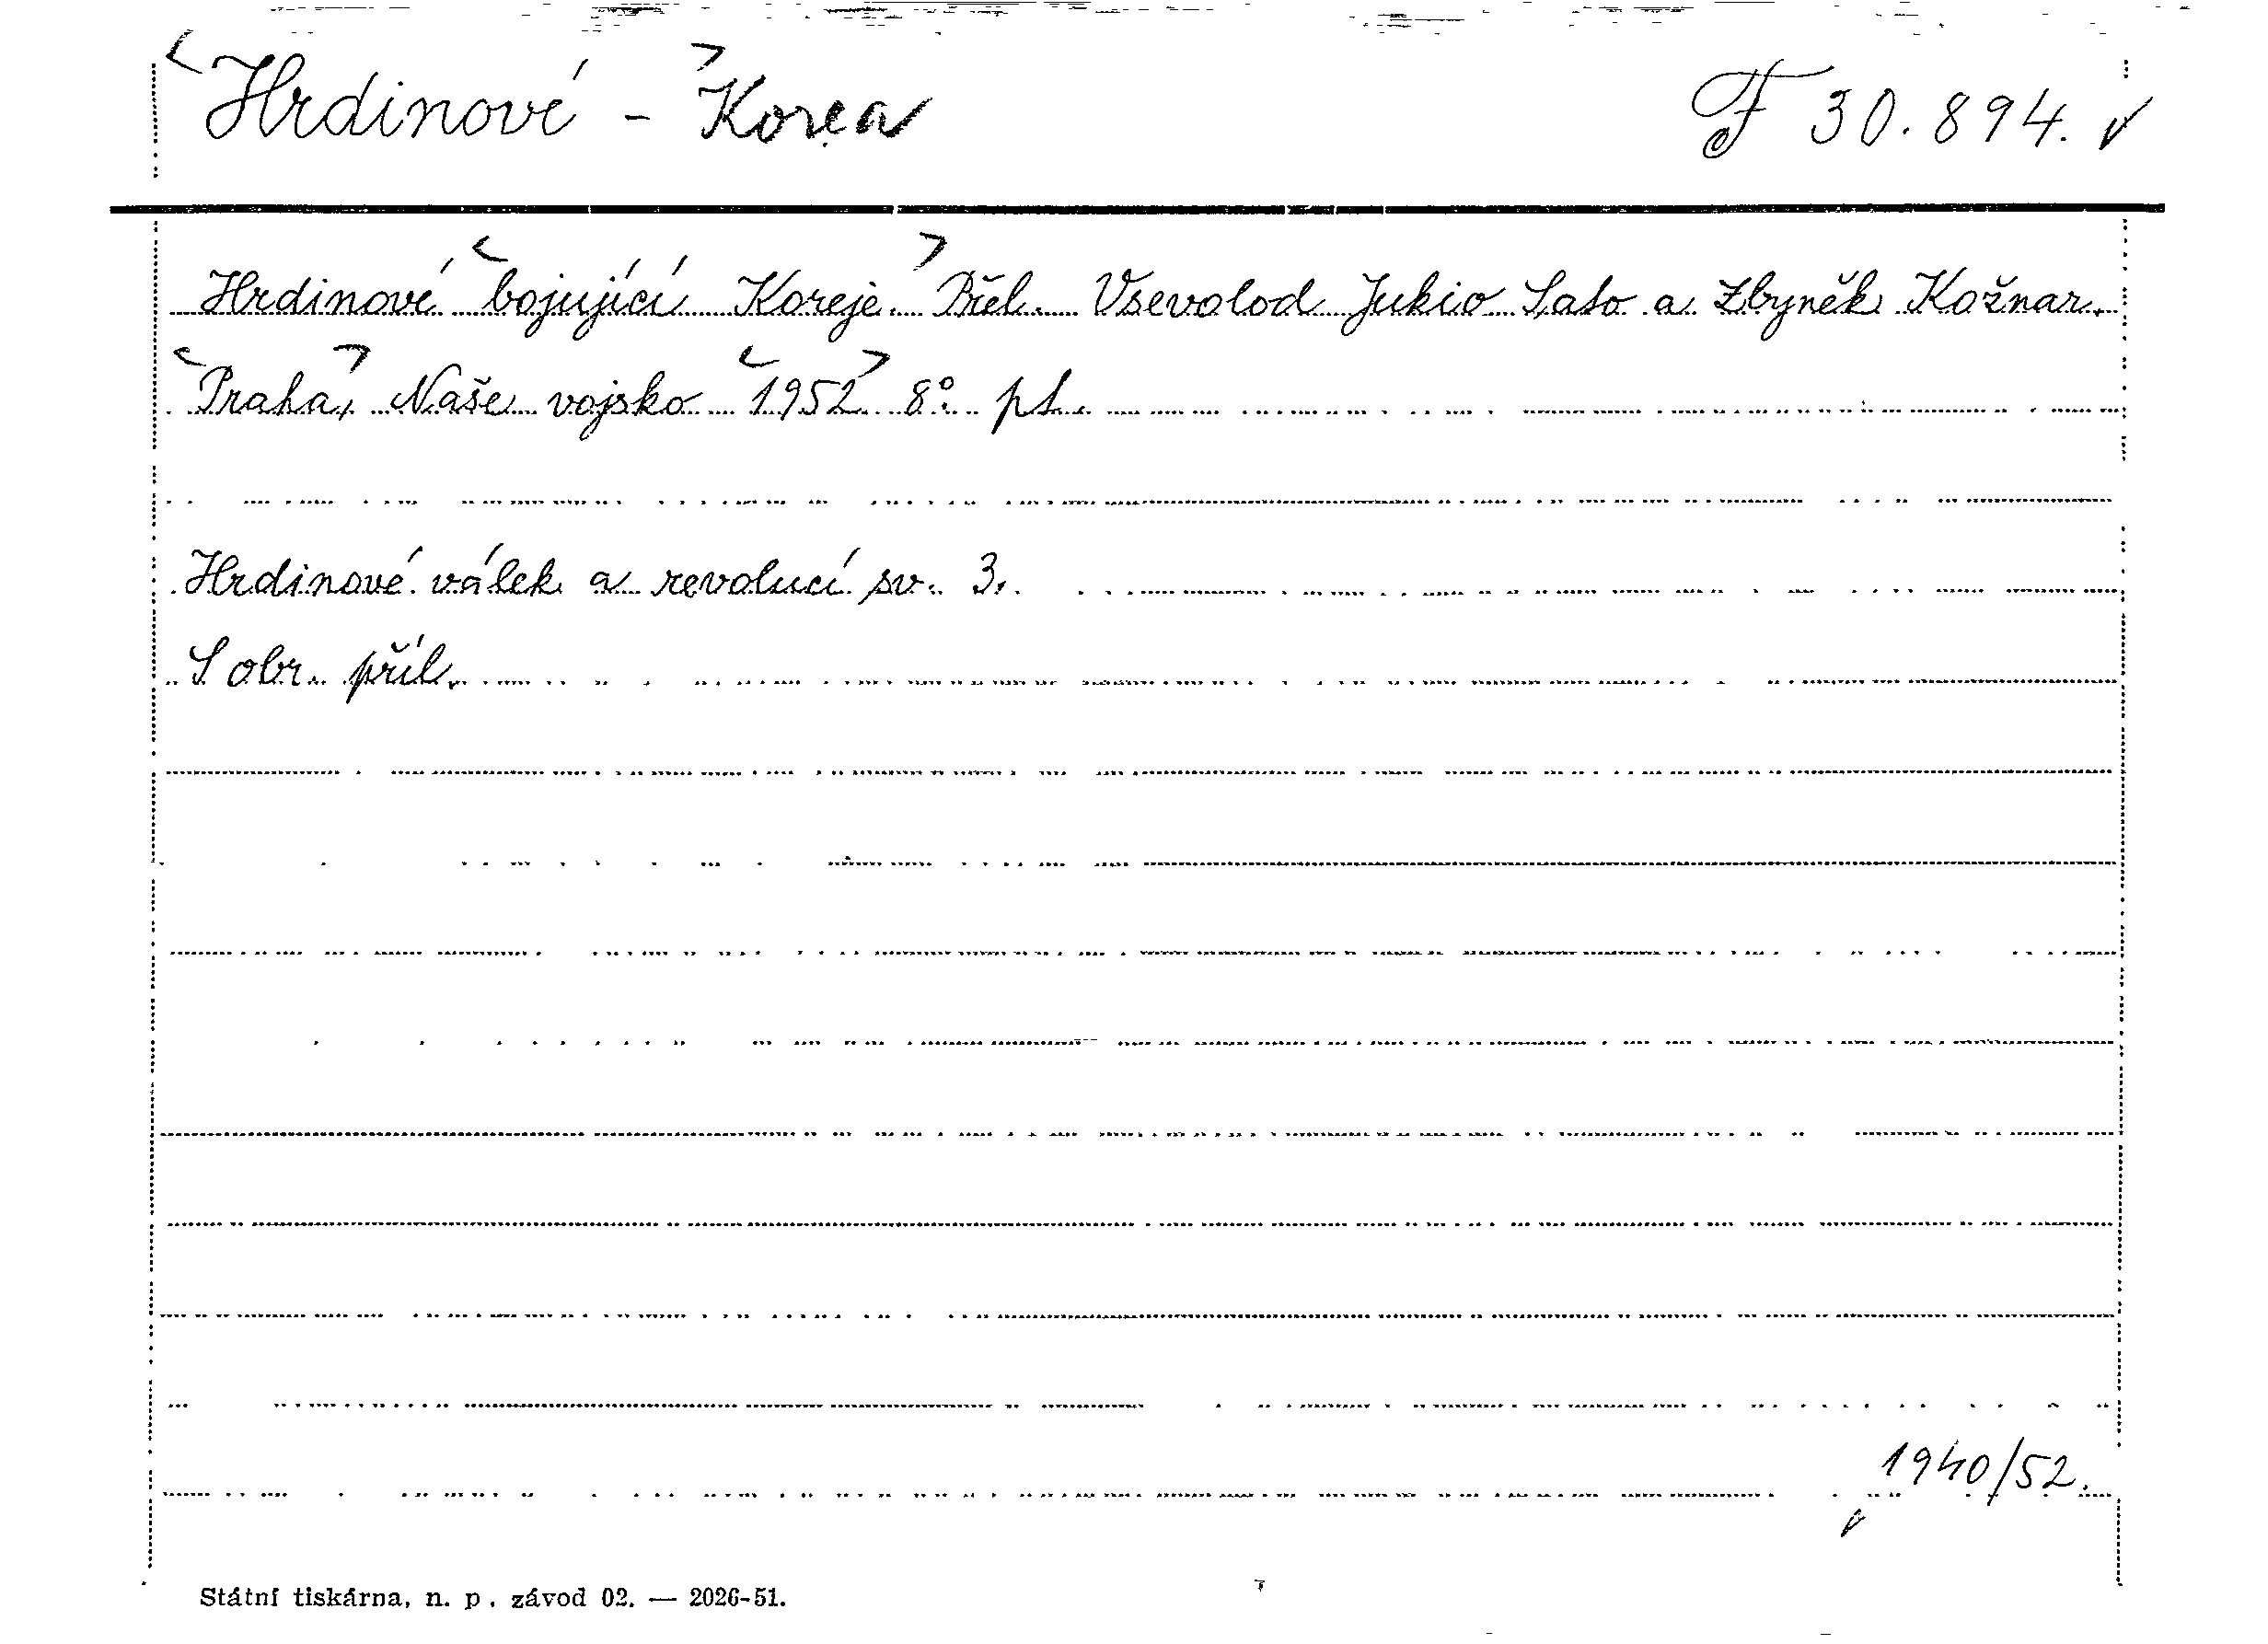 Hrdinové - Korea F 30.894.
Hrdinové bojující Koreje. Přel. Vsevolod Jukio Sato a Zbyněk Kožnar.
Praha, Naše vojsko 1952 8° pl.
Hrdinové válek a revolucí sv. 3.
S obr. příl.
1940/52.
Státní tiskárna, n. p. závod 02. — 2026-51.